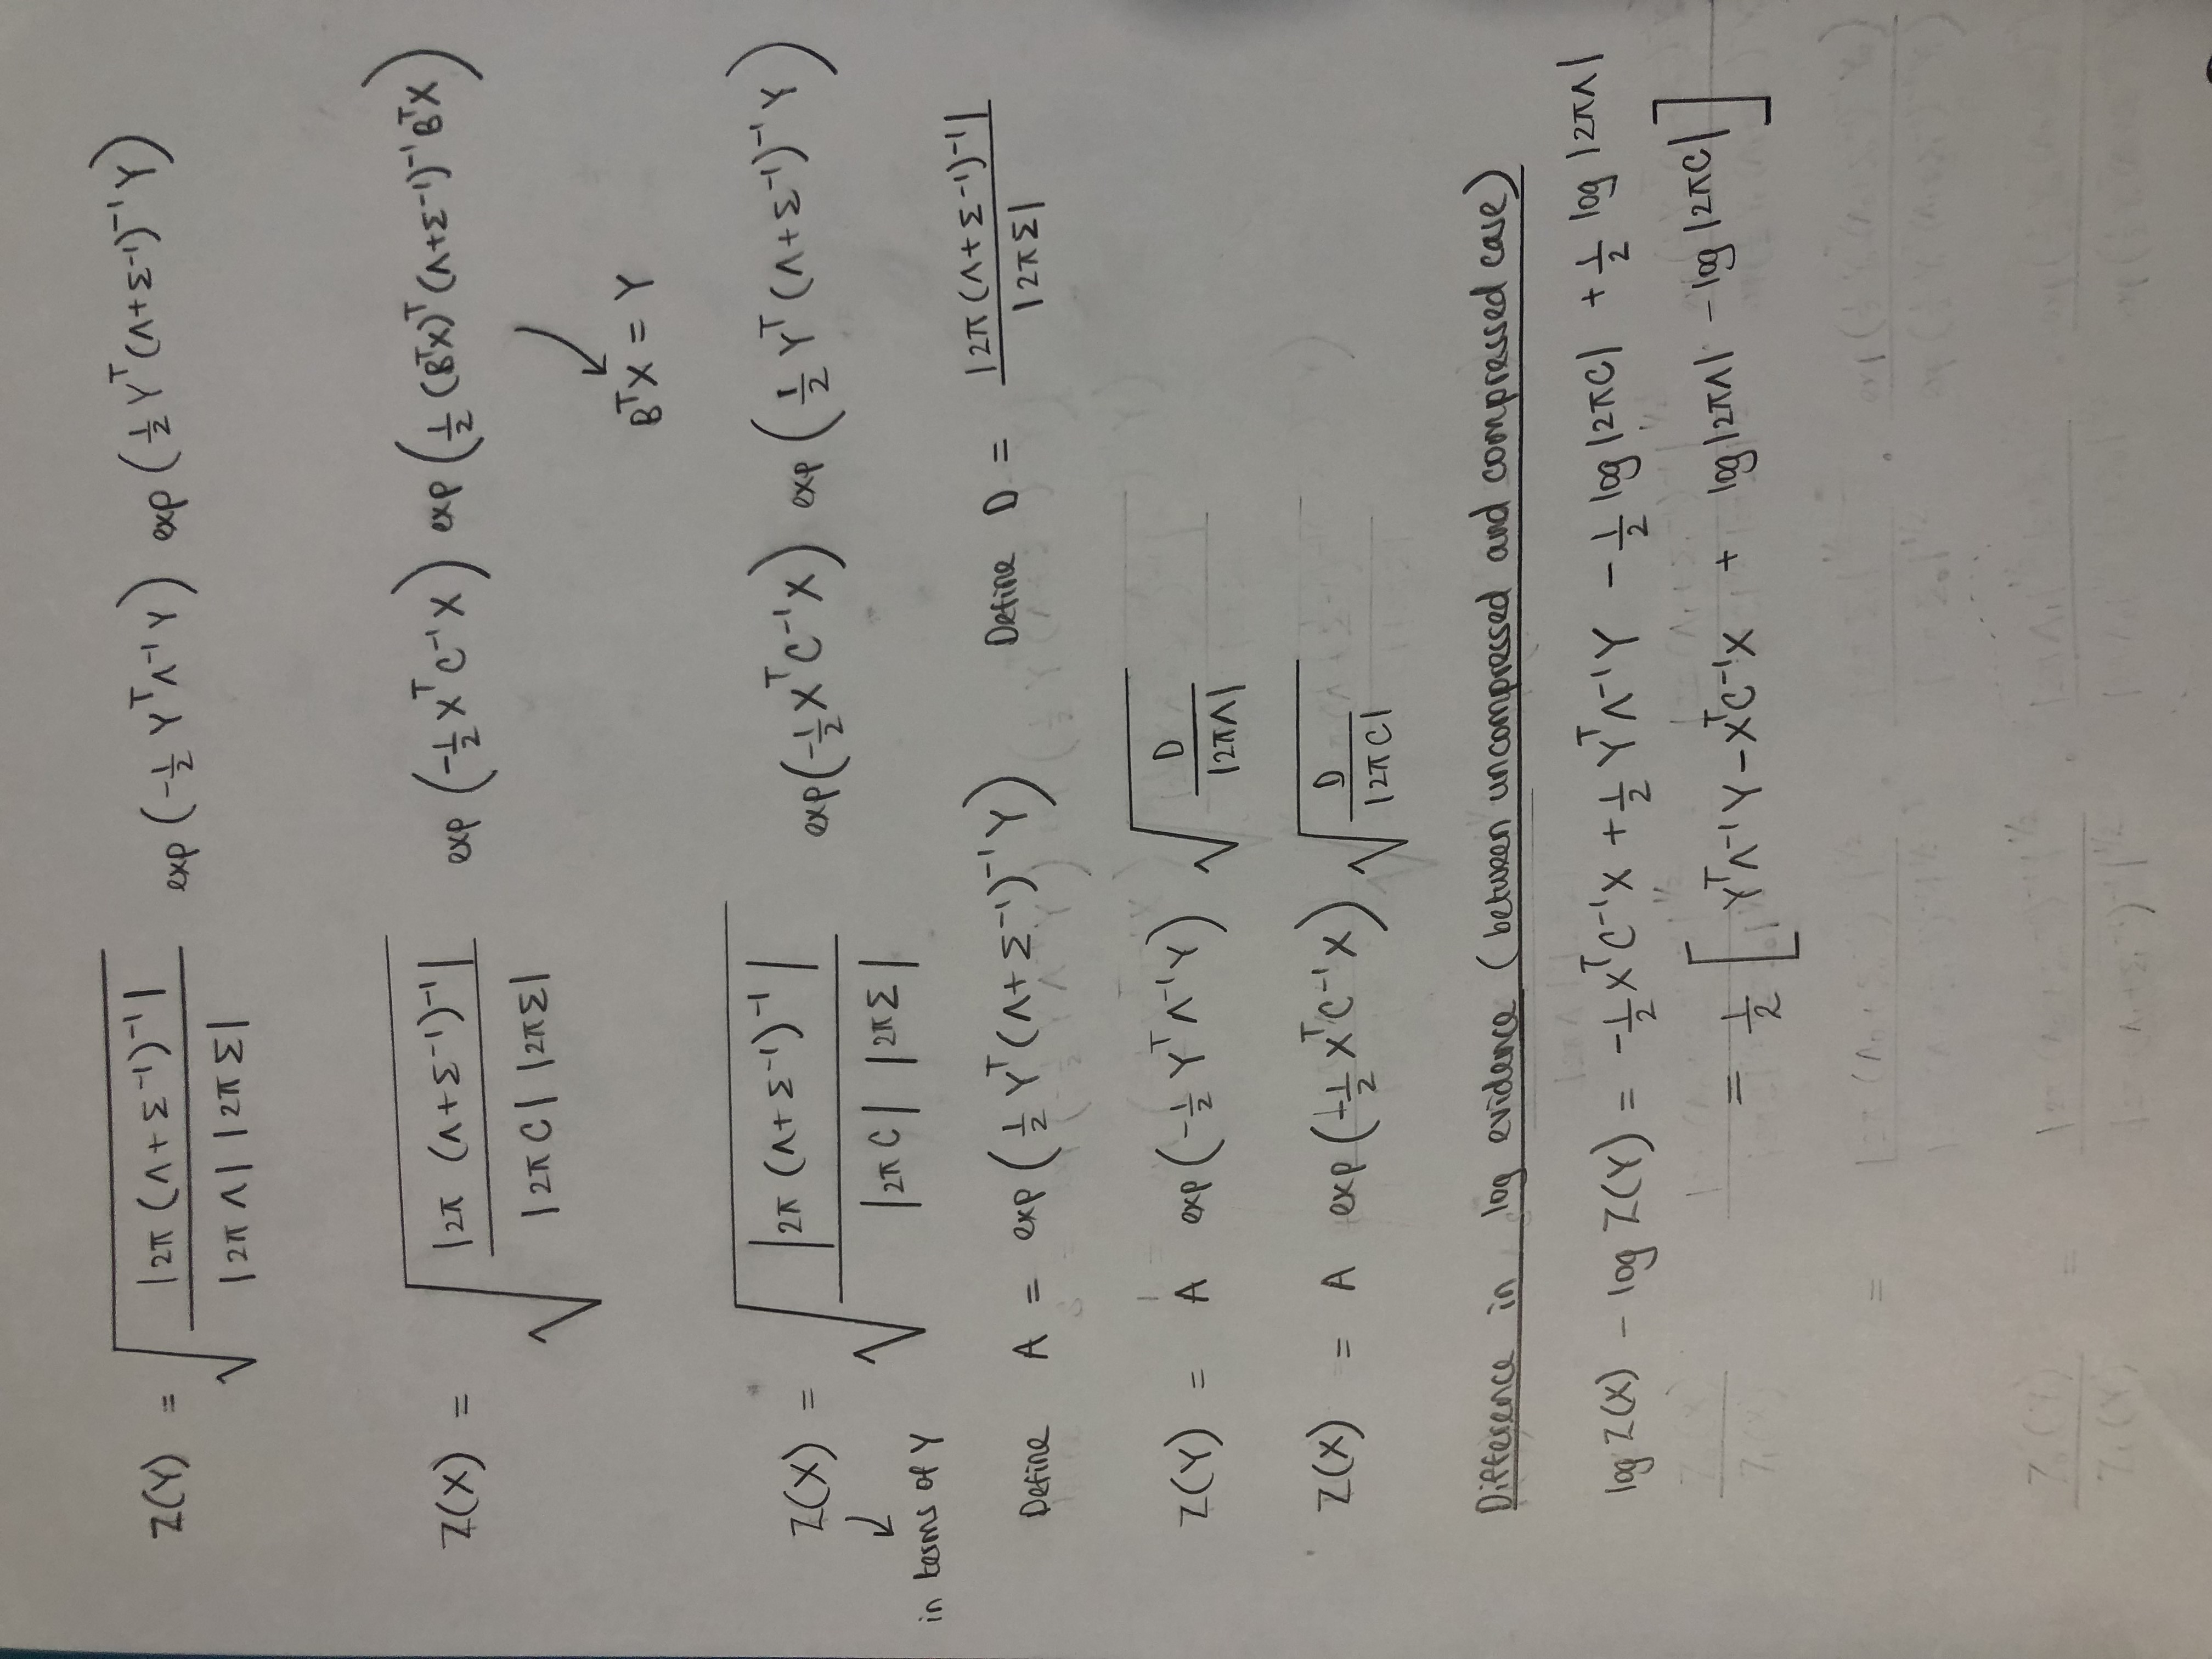 Z(Y) = √( |2π (Λ+Σ⁻¹)⁻¹| / |2πΛ| |2πΣ| ) exp(-½ YᵀΛ⁻¹Y) exp(½ Yᵀ(Λ+Σ⁻¹)⁻¹Y)
Z(X) = √( |2π (Λ+Σ⁻¹)⁻¹| / |2πC| |2πΣ| ) exp(-½ XᵀC⁻¹X) exp(½ (BᵀX)ᵀ(Λ+Σ⁻¹)⁻¹BᵀX)
BᵀX = Y
Z(X) = √( |2π (Λ+Σ⁻¹)⁻¹| / |2πC| |2πΣ| ) exp(-½ XᵀC⁻¹X) exp(½ Yᵀ(Λ+Σ⁻¹)⁻¹Y)
in terms of Y
Define A = exp(½ Yᵀ(Λ+Σ⁻¹)⁻¹Y) Define D = |2π(Λ+Σ⁻¹)⁻¹| / |2πΣ|
Z(Y) = A exp(-½ YᵀΛ⁻¹Y) √( D / |2πΛ| )
Z(X) = A exp(-½ XᵀC⁻¹X) √( D / |2πC| )
Difference in log evidence (between uncompressed and compressed case)
log Z(X) - log Z(Y) = -½ XᵀC⁻¹X + ½ YᵀΛ⁻¹Y - ½ log |2πC| + ½ log |2πΛ|
= ½ [ YᵀΛ⁻¹Y - XᵀC⁻¹X + log|2πΛ| - log |2πC| ]